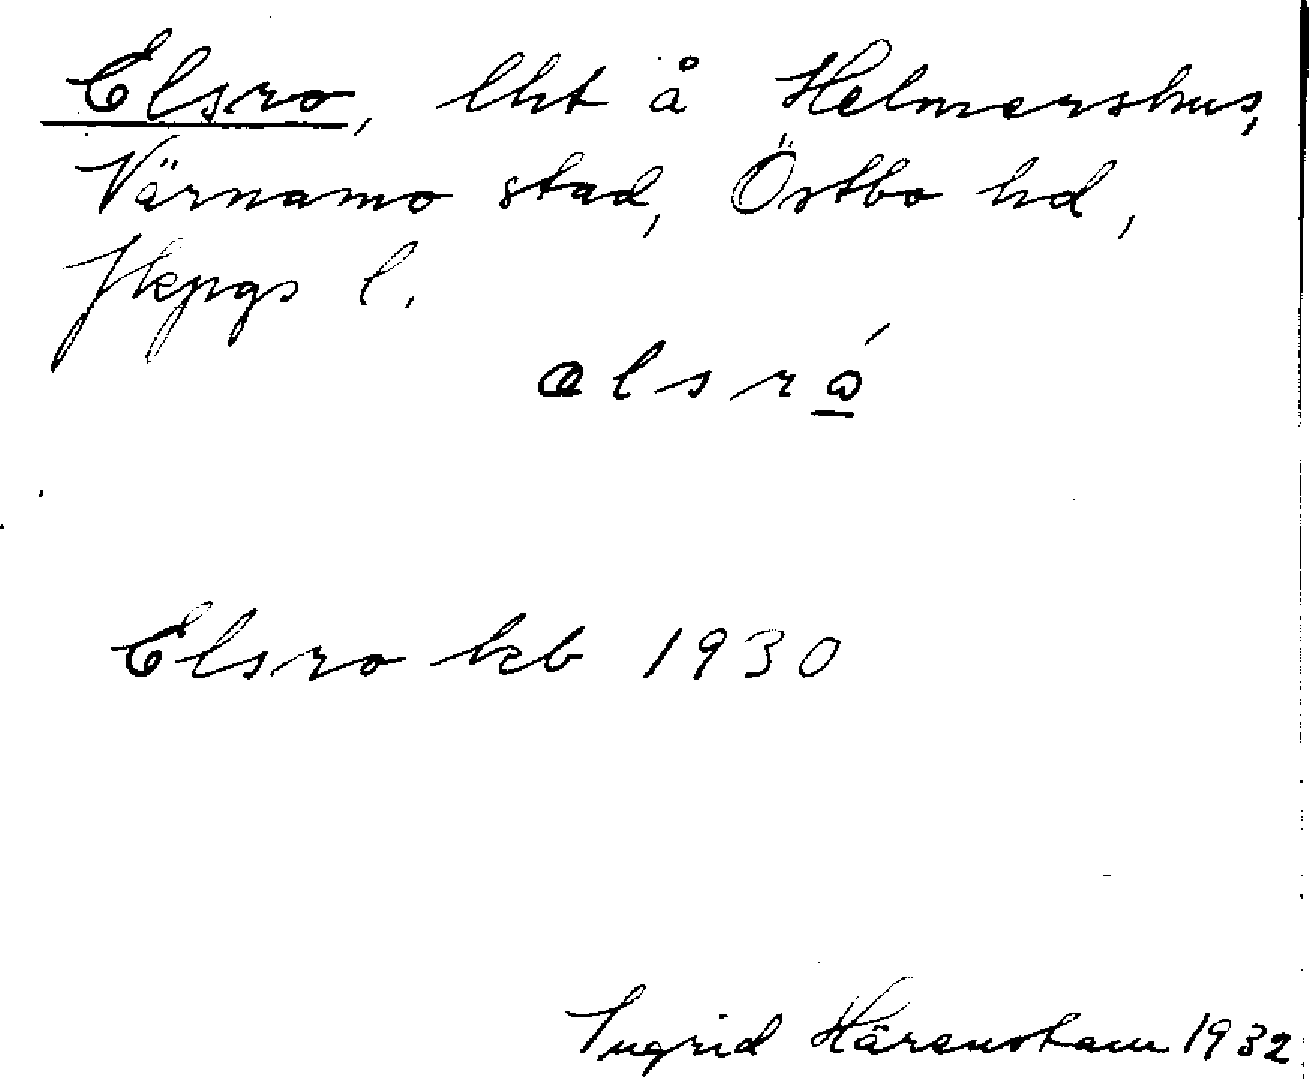 Elsro, lht å Helmershus,
Värnamo stad, Östbo hd,
Jkpgs l.
elsró̲
Elsro kb 1930
Ingrid Härenstam 1932